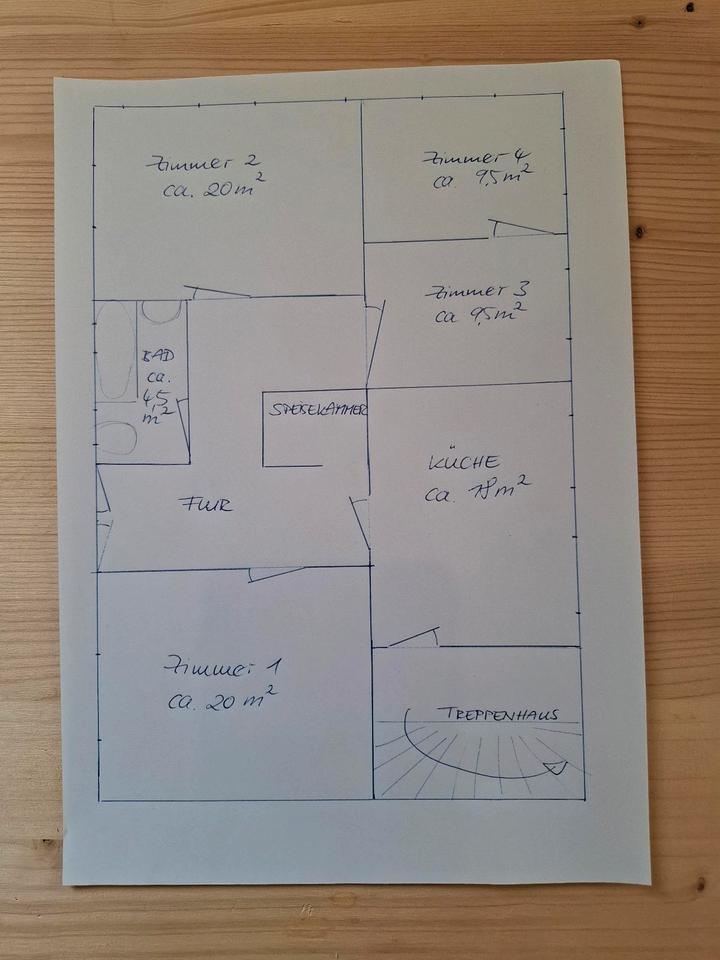 Zimmer 2
ca. 20 m²
Zimmer 4
ca. 9,5 m²
Zimmer 3
ca 9,5 m²
BAD
ca.
4,5
m²
SPEISEKAMMER
KÜCHE
ca. 18 m²
FLUR
Zimmer 1
ca. 20 m²
TREPPENHAUS